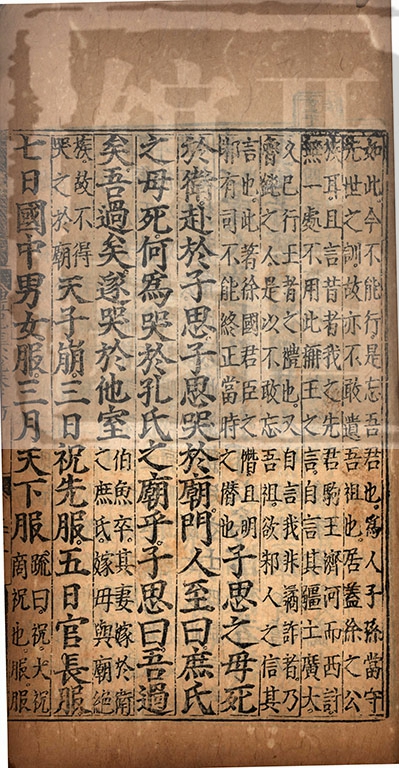 如此今不能行是忘吾君也為人子孫當守
先世之訓故亦不敢遺吾祖也居蓋徐之公
族耳且言昔者我之先君駒王濟河而西討
無一處不用此稱王之言自言其疆土廣大
久已行王者之禮也又自言我非譎詐者乃
魯鈍之人是以不敢忘吾祖欲邾人之信其
言也此著徐國君臣之僭且明
邾有司不能終正當時之僭也
子思之母死
於衛赴於子思子思哭於廟門人至曰庶氏
之母死何為哭於孔氏之廟乎子思曰吾過
矣吾過矣遂哭於他室
伯魚卒其妻嫁於衛
之庶氏嫁母與廟絕
族故不得
哭之於廟
天子崩三日祝先服五日官長服
七日國中男女服三月天下服
疏曰祝大祝
商祝也服服